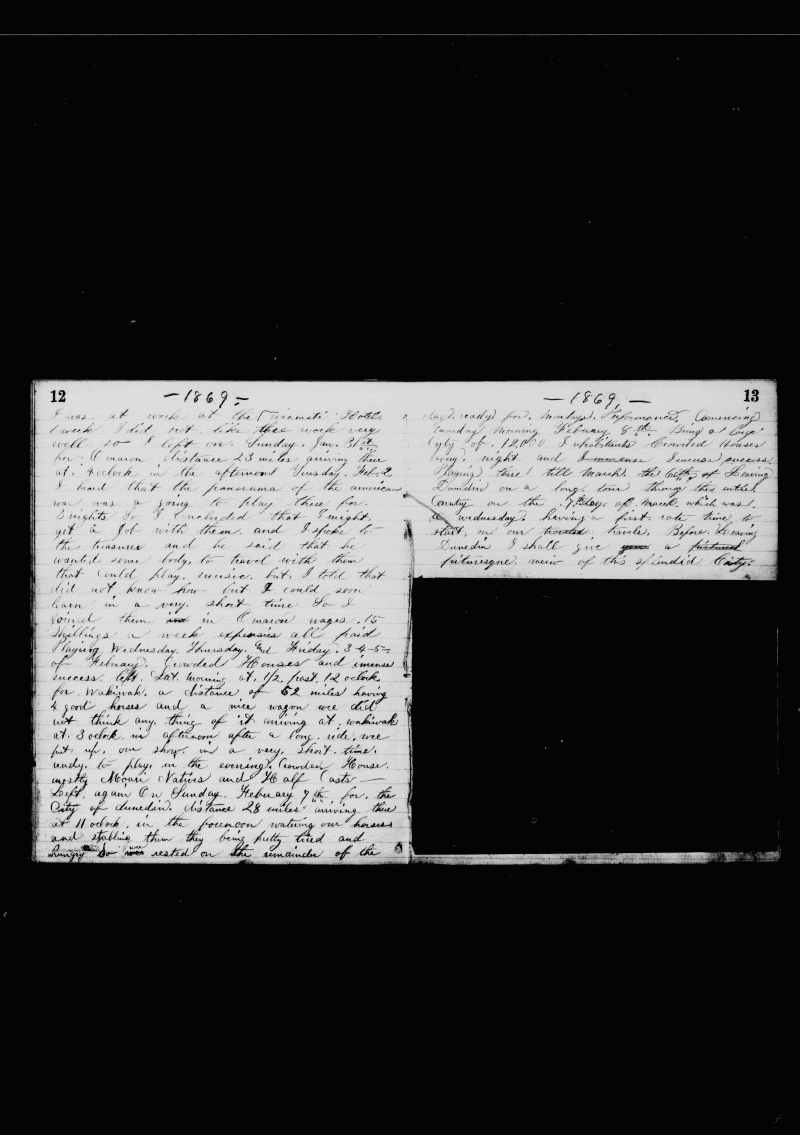 12
—1869—
I was at work at the Hotel
1 week I did not like thee work very
well so I left on. Sunday. Jan. 31st
for. Omaron distance 23 miles arriving thire
at. 4 oclock in the afternoon Tuesday. Feb. 2
I heard that the panorama of the american
war was a going to play there for.
3 nights So I concluded that I might.
git a Job with them and I spoke to
the treasurer and he said that he
wanted some body. to travel with them
that could play. music. but. I told that
did not know how but I could soon
learn in a very. short time So I
joined them in Omaron wages. 15
Shillings a week expensies all paid
Playing Wednesday. Thursday. and Friday. 3-4-5-
of Febuary. Crowded Houses and imense
success. left. Sat. morning at. 1/2. past. 12 oclock.
for. Wakiwak. a distance of 52 miles having
4 good horses and a nice wagon wee did
not think any thing of it ariving at. wakiwak
at. 3 oclock. in afternoon after a long. ride. wee
put. up. our show. in a very. short. time.
ready. to play. in the evening. Crowded House.
mostly Moari Natives and Half Casts—
Left. again On Sunday. Febuary 7th for. the
City of dunedin. distance 28 miles arriving thire
at 11 oclock. in the forenoon watering our horses
and stabling them they being pretty tired and
hungry So wee rested on the remainder of the
13
—1869.—
day. ready. for. Mondays. Performance. Comencing
Monday Morning Febuary 8th Being a large
City of. 12,000 Inhabitants Crowded Houses
evry. night and I imense Imense success
Playing there till March. the 6th of Leaving
Dunedin on a long. tour throug the entire.
County on the 7th day. of. March. which was.
a wednesday. having a first rate time to
start. on our travels. Before. Leaving
Dunedin I shall give a pictured
picturesque view of this splendid City.